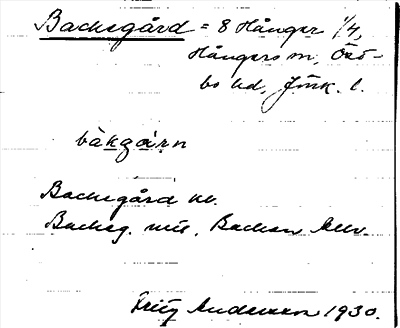 Backegård = 8 Hånger 1/4,
Hångers sn, Östbo hd, Jönk. l.
bàkgàrn
Backegård kv.
Backeg. mtl. Backen
Fritz Andersson 1930.